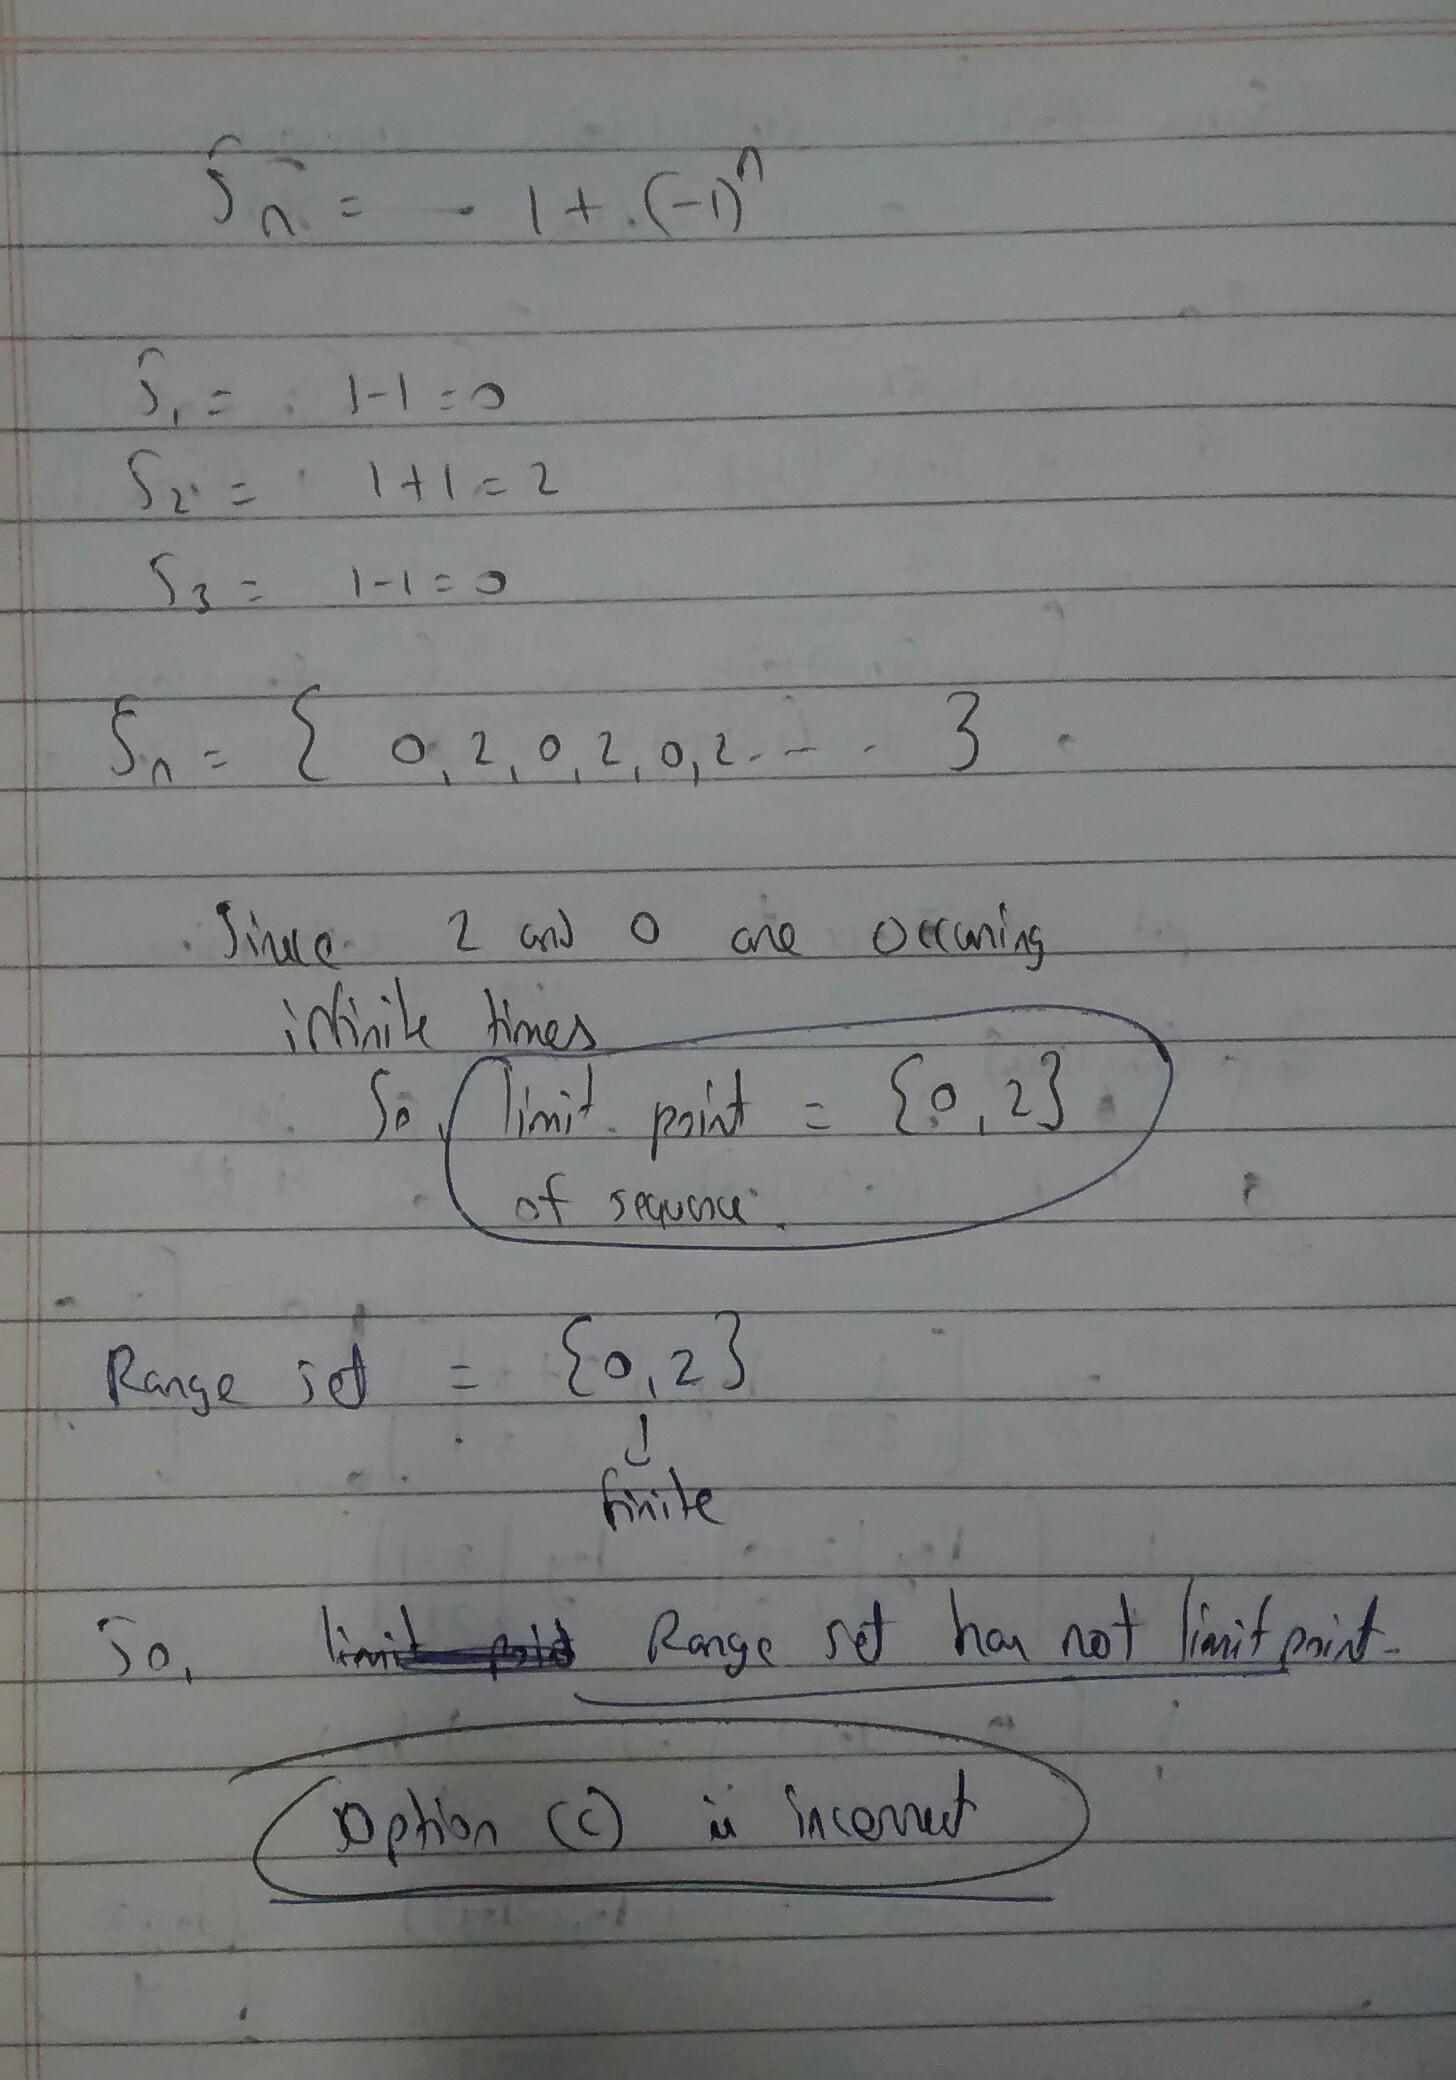 Sn = 1 + (-1)^n
S1 = 1-1=0
S2 = 1+1=2
S3 = 1-1=0
Sn = { 0,2,0,2,0,2--- }
Since 2 and 0 are occuring
infinite times
So, limit point = {0,2}
of sequence.
Range set = {0,2}
↓
finite
So, Range set has not limit point.
Option (c) is incorrect